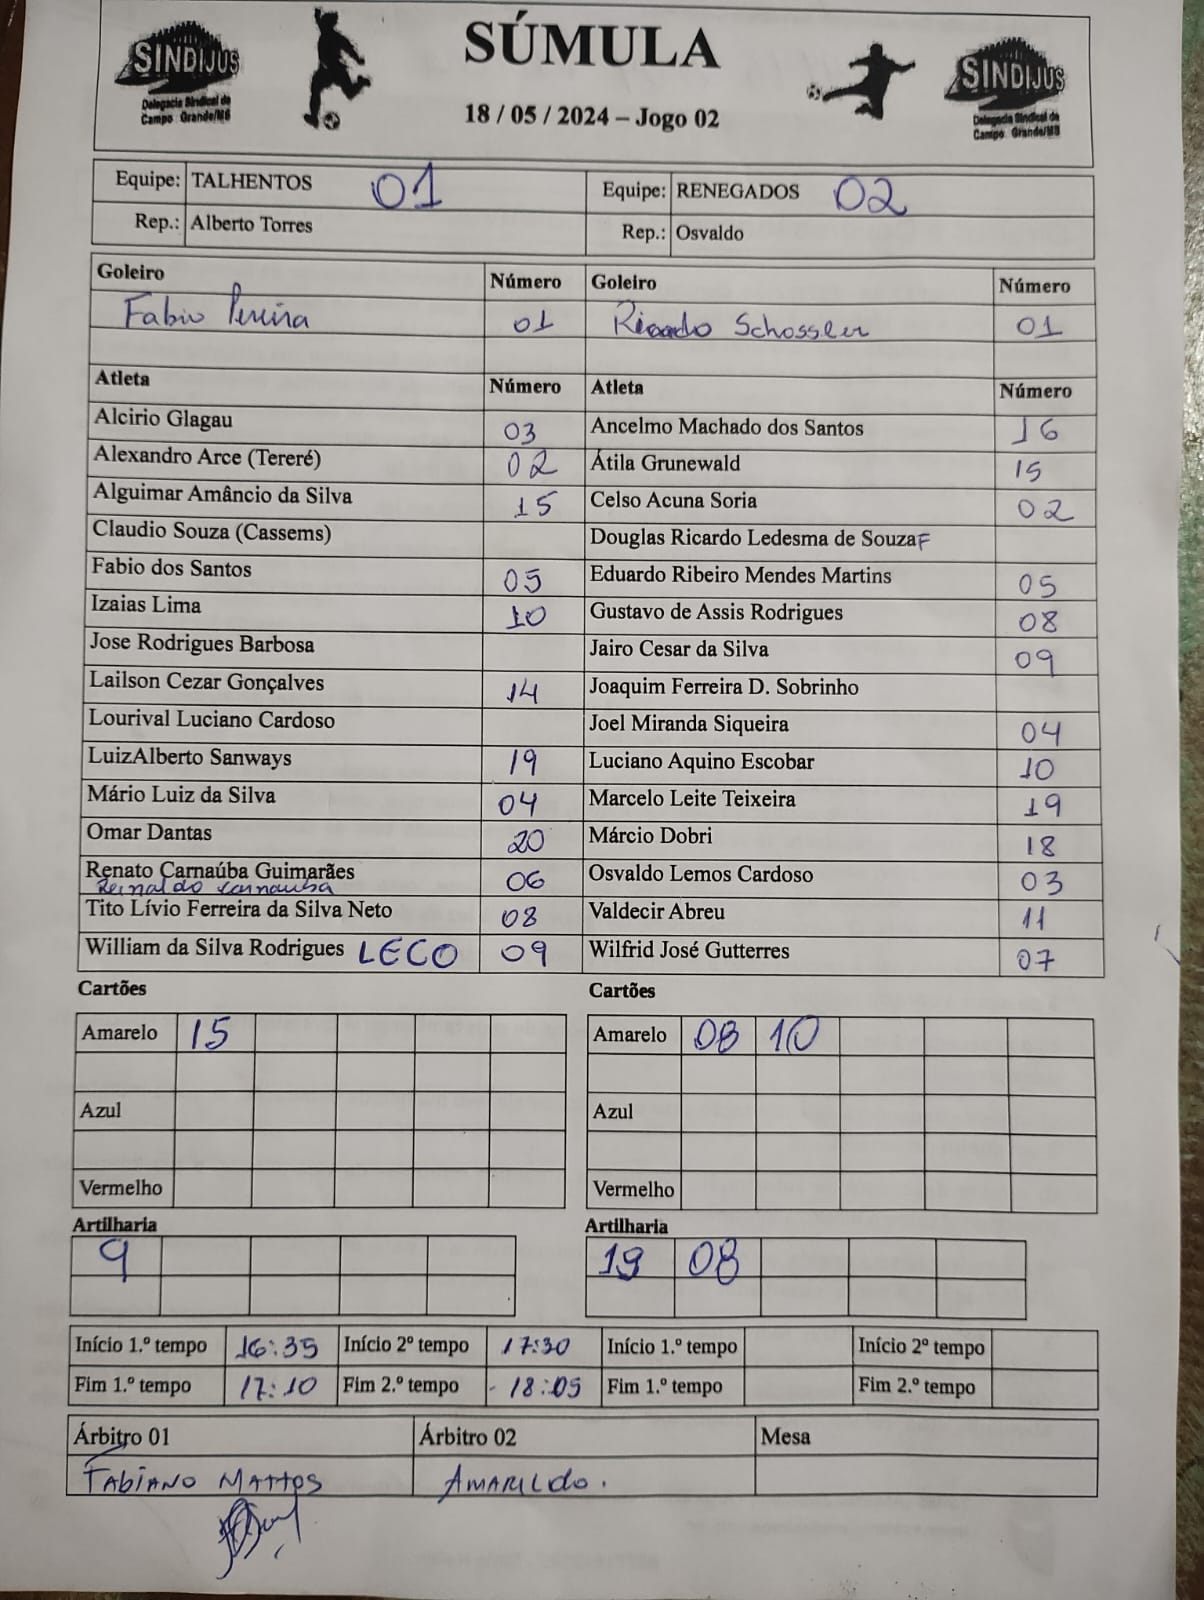 SINDIJUS
Delegacia Sindical de
Campo Grande/MS
SÚMULA
18 / 05 / 2024 – Jogo 02
SINDIJUS
Delegacia Sindical de
Campo Grande/MS
Equipe: TALHENTOS 01 Equipe: RENEGADOS 02
Rep.: Alberto Torres Rep.: Osvaldo
Goleiro Número Goleiro Número
Fabio Pereira 01 Ricardo Schossler 01
Atleta Número Atleta Número
Alcirio Glagau 03 Ancelmo Machado dos Santos 16
Alexandro Arce (Tereré) 02 Átila Grunewald 15
Alguimar Amâncio da Silva 15 Celso Acuna Soria 02
Claudio Souza (Cassems) Douglas Ricardo Ledesma de Souza F
Fabio dos Santos 05 Eduardo Ribeiro Mendes Martins 05
Izaias Lima 10 Gustavo de Assis Rodrigues 08
Jose Rodrigues Barbosa Jairo Cesar da Silva 09
Lailson Cezar Gonçalves 14 Joaquim Ferreira D. Sobrinho
Lourival Luciano Cardoso Joel Miranda Siqueira 04
LuizAlberto Sanways 19 Luciano Aquino Escobar 10
Mário Luiz da Silva 04 Marcelo Leite Teixeira 19
Omar Dantas 20 Márcio Dobri 18
Renato Carnaúba Guimarães 06 Osvaldo Lemos Cardoso 03
Reinaldo Carnauba
Tito Lívio Ferreira da Silva Neto 08 Valdecir Abreu 11
William da Silva Rodrigues LECO 09 Wilfrid José Gutterres 07
Cartões Cartões
Amarelo 15 Amarelo 08 10
Azul Azul
Vermelho Vermelho
Artilharia Artilharia
9 19 08
Início 1.º tempo 16:35 Início 2º tempo 17:30 Início 1.º tempo Início 2º tempo
Fim 1.º tempo 17:10 Fim 2.º tempo - 18:05 Fim 1.º tempo Fim 2.º tempo
Árbitro 01 Árbitro 02 Mesa
FABIANO MATTOS AMARILDO.